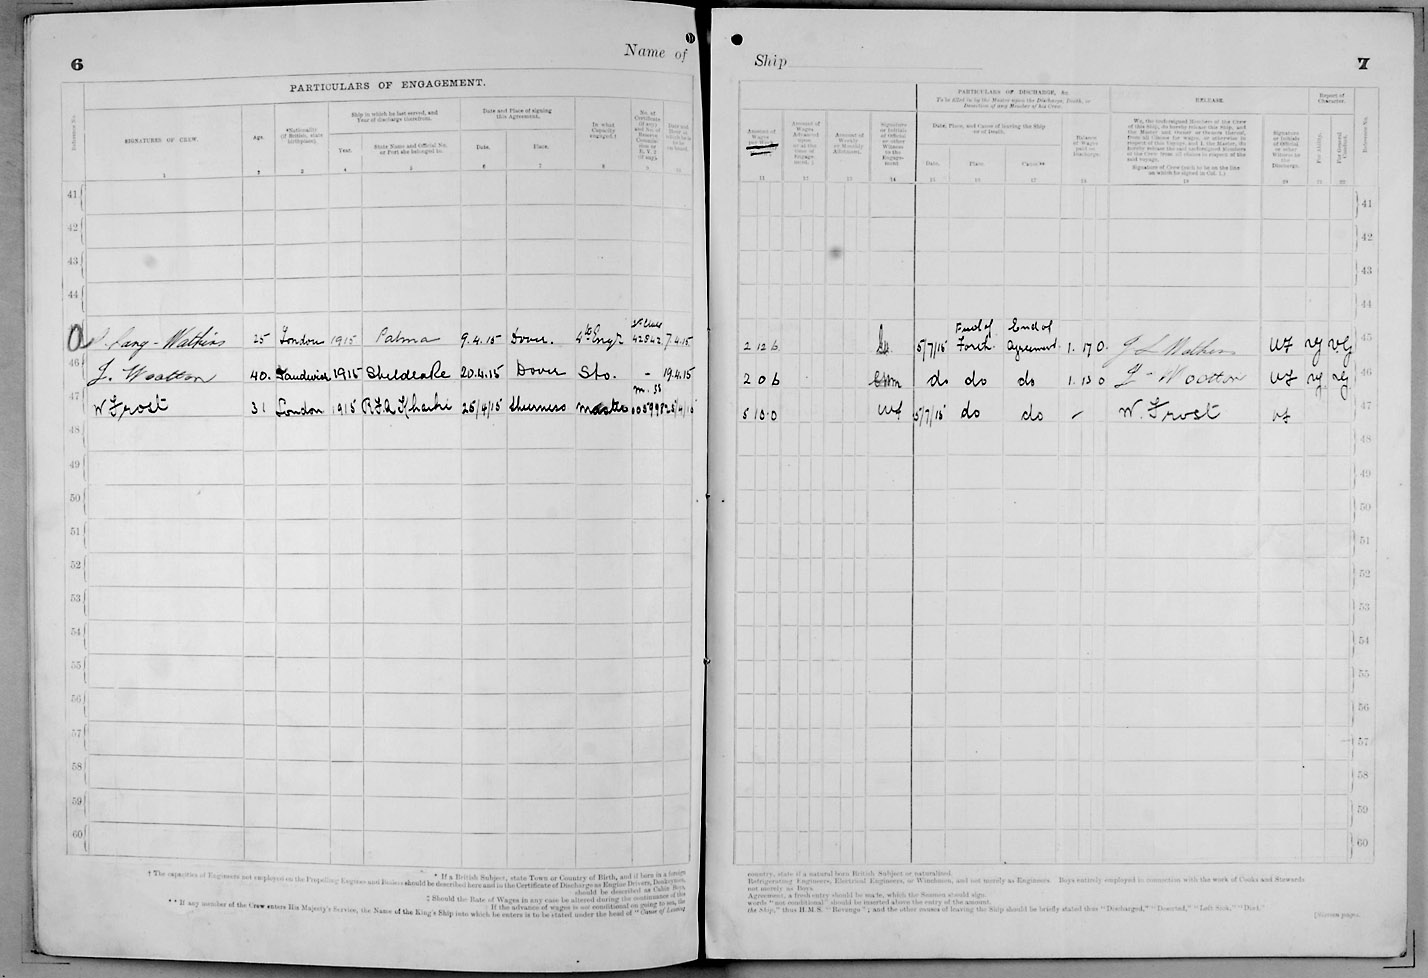 6
Name of
PARTICULARS OF ENGAGEMENT.
Reference No.
SIGNATURES OF CREW.
Age.
*Nationality
(If British, state
birthplace).
Ship in which he last served, and
Year of discharge therefrom.
Year.
State Name and Official No.
or Port she belonged to.
Date and Place of signing
this Agreement.
Date.
Place.
In what
Capacity
engaged.†
No. of
Certificate
(if any)
and No. of
Reserve
1 2 3 4 5 6 7 8 9 10
41
42
43
44
Lang-Watkins 25 London 1915 Palma 9.4.15 Dover. 4th Engr 42542 7.4.15
46 J. Wootton 40. Sandwich 1915 Sheldrake 20.4.15 Dover Sto. - 19.4.15
W Frost 31 London 1915 R.F.A Kharki 25/4/15 Sheerness Master
48
49
50
51
52
53
54
55
56
57
58
59
60
* If a British Subject, state Town or Country of Birth, and if born in a foreign
† The capacities of Engineers not employed on the Propelling Engines and Boilers should be described here and in the Certificate of Discharge as Engine Drivers, Donkeymen,
should be described as Cabin Boys,
‡ Should the Rate of Wages in any case be altered during the continuance of this
If the advance of wages is not conditional on going to sea, the
** If any member of the Crew enters His Majesty's Service, the Name of the King's Ship into which he enters is to be stated under the head of "Cause of Leaving
Ship
7
PARTICULARS OF DISCHARGE, &c.
To be filled in by the Master upon the Discharge, Death, or
Desertion of any Member of his Crew.
RELEASE.
Report of
Character.
Amount of
Wages
Amount of
Wages
Advanced
upon
or at the
time of
Engage-
ment.
Amount of
Weekly
or Monthly
Allotment.
Signature
or Initials
of Official
or other
Witness
to the
Engage-
ment
Date, Place, and Cause of leaving the Ship
or of Death.
Date.
Place.
Cause**
Balance
of Wages
paid on
Discharge.
We, the undersigned Members of the Crew
of this Ship, do hereby release this Ship, and
the Master and Owner or Owners thereof,
from all Claims for wages, or otherwise in
respect of this Voyage, and I, the Master, do
hereby release the said undersigned Members
of the Crew from all claims in respect of the
said voyage.
Signature of Crew (each to be on the line
on which he signed in Col. 1.)
Signature
or Initials
of Official
or other
Witness to
the
Discharge.
For Ability.
For General
Conduct.
Reference No.
11 12 13 14 15 16 17 18 19 20 21 22
41
42
43
44
2 12 6 5/7/15 Firth of Forth End of Agreement 1. 17 0. J L Watkins WF VG VG 45
2 0 6 do do do 1. 13 0 J - Wootton WF VG VG 46
5 10 0 WF 5/7/15 do do - W. Frost 47
48
49
50
51
52
53
54
55
56
57
58
59
60
country, state if a natural born British Subject or naturalized.
Refrigerating Engineers, Electrical Engineers, or Winchmen, and not merely as Engineers. Boys entirely employed in connection with the work of Cooks and Stewards
not merely as Boys.
Agreement, a fresh entry should be made, which the Seaman should sign.
words "not conditional" should be inserted above the entry of the amount.
the Ship," thus H.M.S. "Revenge"; and the other causes of leaving the Ship should be briefly stated thus "Discharged," "Deserted," "Left Sick," "Died."